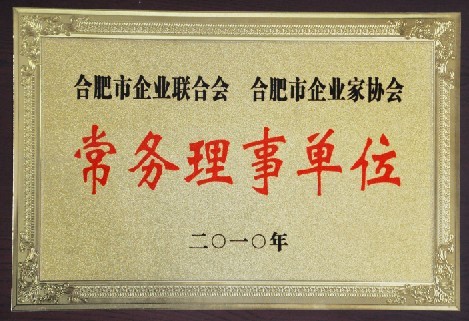 合肥市企业联合会 合肥市企业家协会
常务理事单位
二〇一〇年